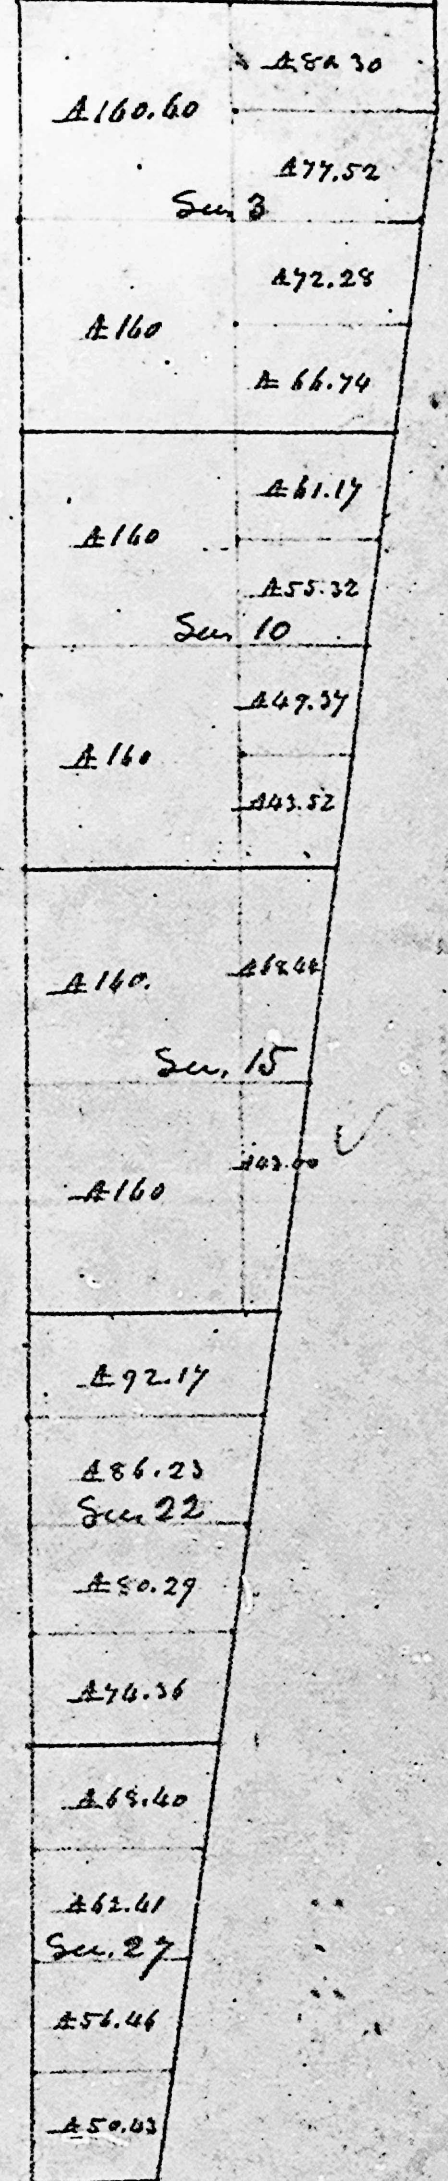 A 82.30
A 160.60
A 77.52
Sec. 3
A 72.28
A 160
A 66.74
A 61.17
A 160
A 55.32
Sec. 10
A 49.37
A 160
A 43.52
A 160.
Sec. 15
A 160
A 92.17
A 86.23
Sec. 22
A 80.29
A 74.36
A 68.40
A 62.41
Sec. 27
A 56.46
A 50.43